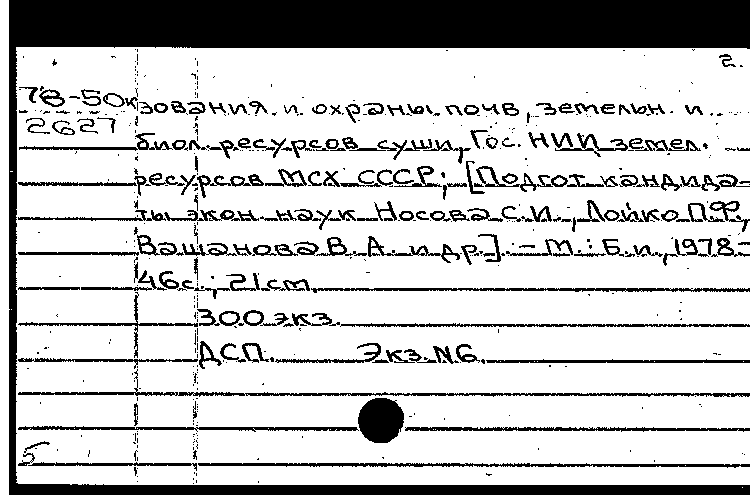 2.
78-50к
2627
зования и охраны почв, земельн. и
биол. ресурсов суши, Гос. НИИ земел.
ресурсов МСХ СССР; [Подгот кандида-
ты экон. наук Носова С.И., Лойко П.Ф.,
Вашанова В. А. и др]. - М.: Б.и, 1978-
46с.; 21см.
300 экз.
ДСП. Экз. N6.
5